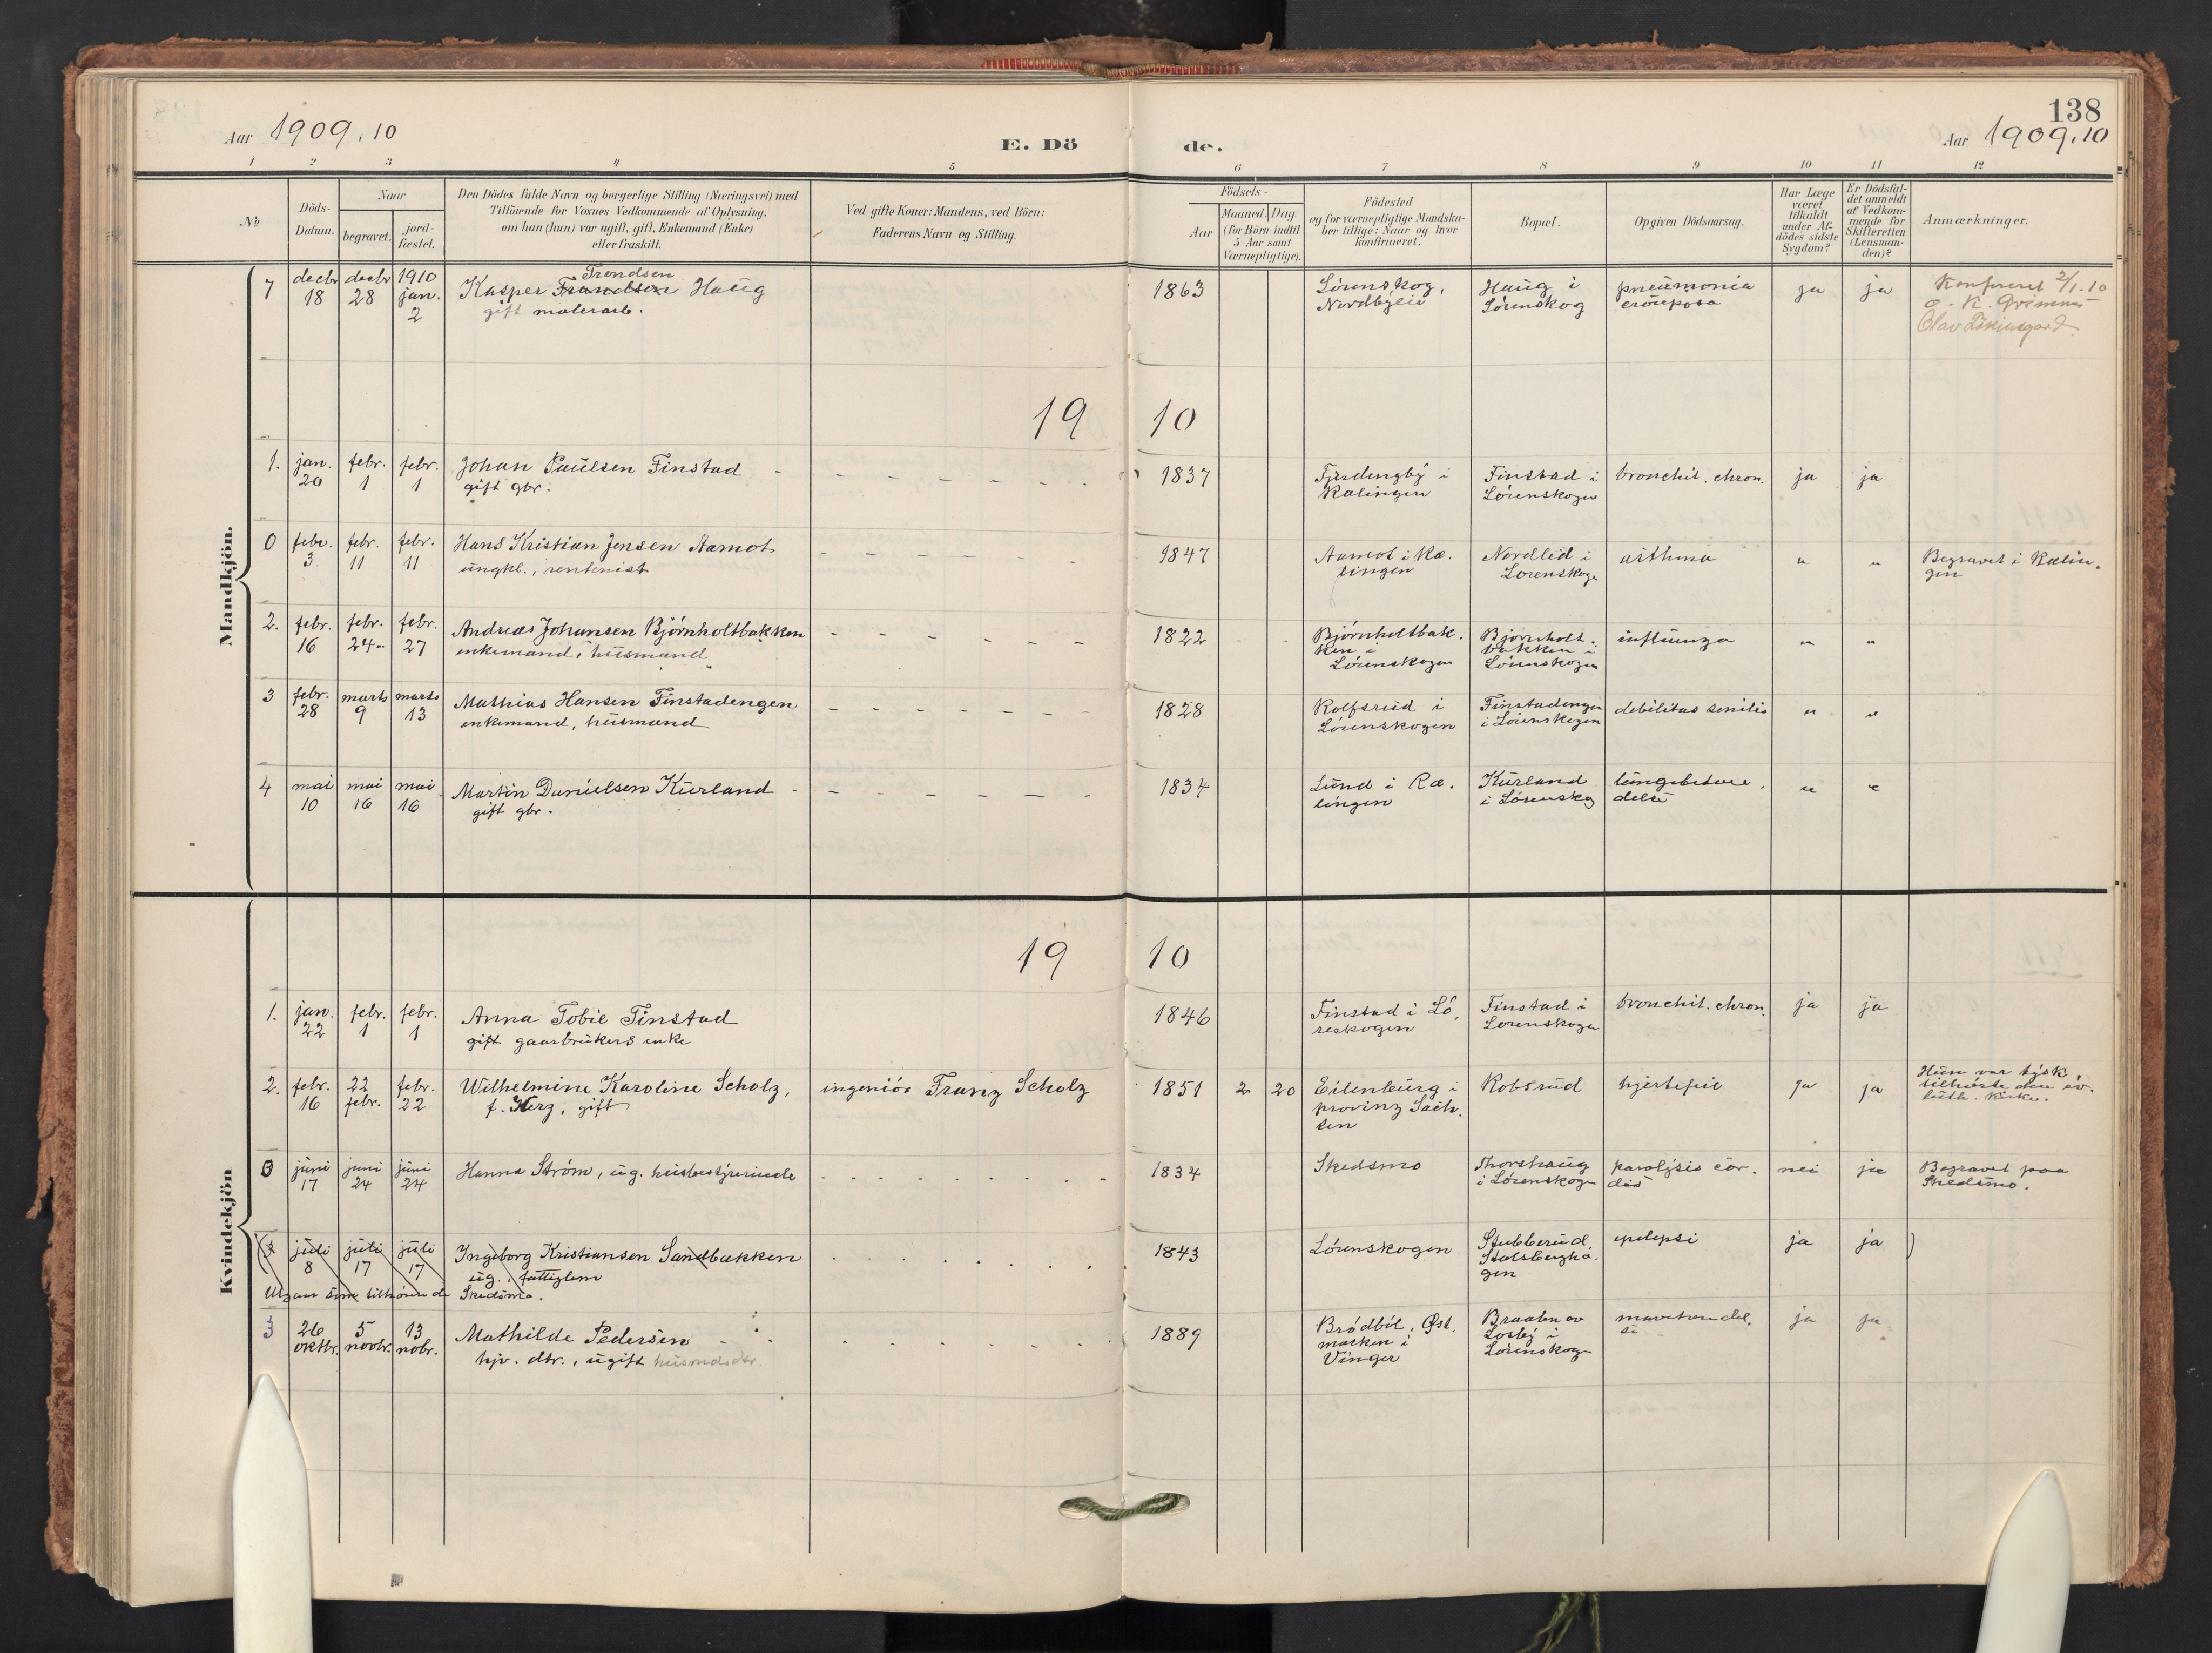 138
Aar 1909.10
E. Dö de.
Aar 1909.10
1 2 3 4 5 6 7 8 9 10 11 12
No
Döds-
Datum.
Naar
begravet.
jord-
fæstet.
Den Dödes fulde Navn og borgerlige Stilling (Næringsvei) med
Tilföiende for Voxnes Vedkommende af Oplysning,
om han (hun) var ugift, gift, Enkemand (Enke)
eller fraskilt.
Ved gifte Koner: Mandens, ved Börn:
Faderens Navn og Stilling.
Födsels-
Aar
Maaned. Dag.
(for Börn indtil
5 Aar samt
Værnepligtige).
Födested
og for værnepligtige Mandska-
ber tillige: Naar og hvor
konfirmeret.
Bopæl.
Opgiven Dödsaarsag.
Har Læge
været
tilkaldt
under Af-
dödes sidste
Sygdom?
Er Dödsfal-
det anmeldt
af Vedkom-
mende for
Skifteretten
(Lensman-
den)?
Anmærkninger.
Mandkjön.
7 decbr 18 decbr 28 1910 jan. 2
Trondsen
Kasper Frandsen Haug
gift malerarb.
1863
Lørenskog,
Nordbylie
Haug i
Lørenskog
pneumonia
crouposa
ja ja
Konfereret 2/1.10
19 10
1. jan. 20 febr. 1 febr. 1
Johan Paulsen Finstad
gift gbr.
1837
Fjerdengby i
Rælingen
Finstad i
Lørenskogen
bronchit. chron.
ja ja
0 febr. 3 febr. 11 febr. 11
Hans Kristian Jensen Aamot
ungkl., rentenist
1847
Aamot i Ræ.
lingen
Nordlid i
Lørenskogen
asthma
" "
Begravet i Rælin.
gen
2. febr. 16 febr. 24 febr. 27
Andreas Johansen Bjørnholtbakken
enkemand, husmand
1822
Bjørnholtbak.
ken i
Lørenskogen
Bjørnholt.
bakken i
Lørenskogen
influenza
" "
3 febr. 28 marts 9 marts 13
Mathias Hansen Finstadengen
enkemand, husmand
1828
Rolfsrud i
Lørenskogen
Finstadengen
i Lørenskogen
debilitas senilis
" "
4 mai 10 mai 16 mai 16
Martin Danielsen Kurland
gift gbr.
1834
Lund i Ræ.
lingen
Kurland
i Lørenskog
lungebetæn.
delse
" "
Kvindekjön
19 10
1. jan. 22 febr. 1 febr. 1
Anna Tobie Finstad
gift gaarbrukers enke
1846
Finstad i Lø.
renskogen
Finstad i
Lørenskogen
bronchit. chron.
ja ja
2. febr. 16 22 febr. febr. 22
Wilhelmine Karoline Scholz,
f. Herz, gift
ingeniør Franz Scholz
1851 2 20
Eilenburg i
provinz Sach.
sen
Robsrud
hjertefeil
ja ja
Hun var tysk
tilhørte den ev.
luth. kirke.
0 juni 17 juni 24 juni 24
Hanna Strøm, ug. husbestyrerinde
1834
Skedsmo
Thorshaug
i Lørenskogen
paralysis cor.
dis
nei ja
Begravet paa
Skedsmo.
(3 juli 8 juli 17 juli 17
Ingeborg Kristiansen Sandbakken
ug., fattiglem
som tilhørende Skedsmo.
1843
Lørenskogen
Stubberud,
Stalsbergha.
gen
epilepsi
ja ja )
3 26 oktbr. 5 novbr. 13 nobr.
Mathilde Pedersen
hjv. dtr., ugift husmdsdtr
1889
Brødbøl, Øst.
marken i
Vinger
Braaten av
Losby i
Lørenskog
ja ja